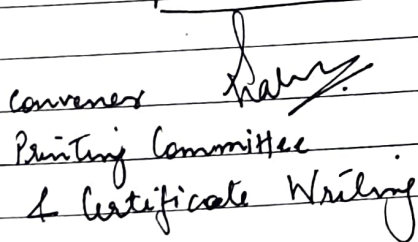 convener
Printing Committee
& Certificate Writing